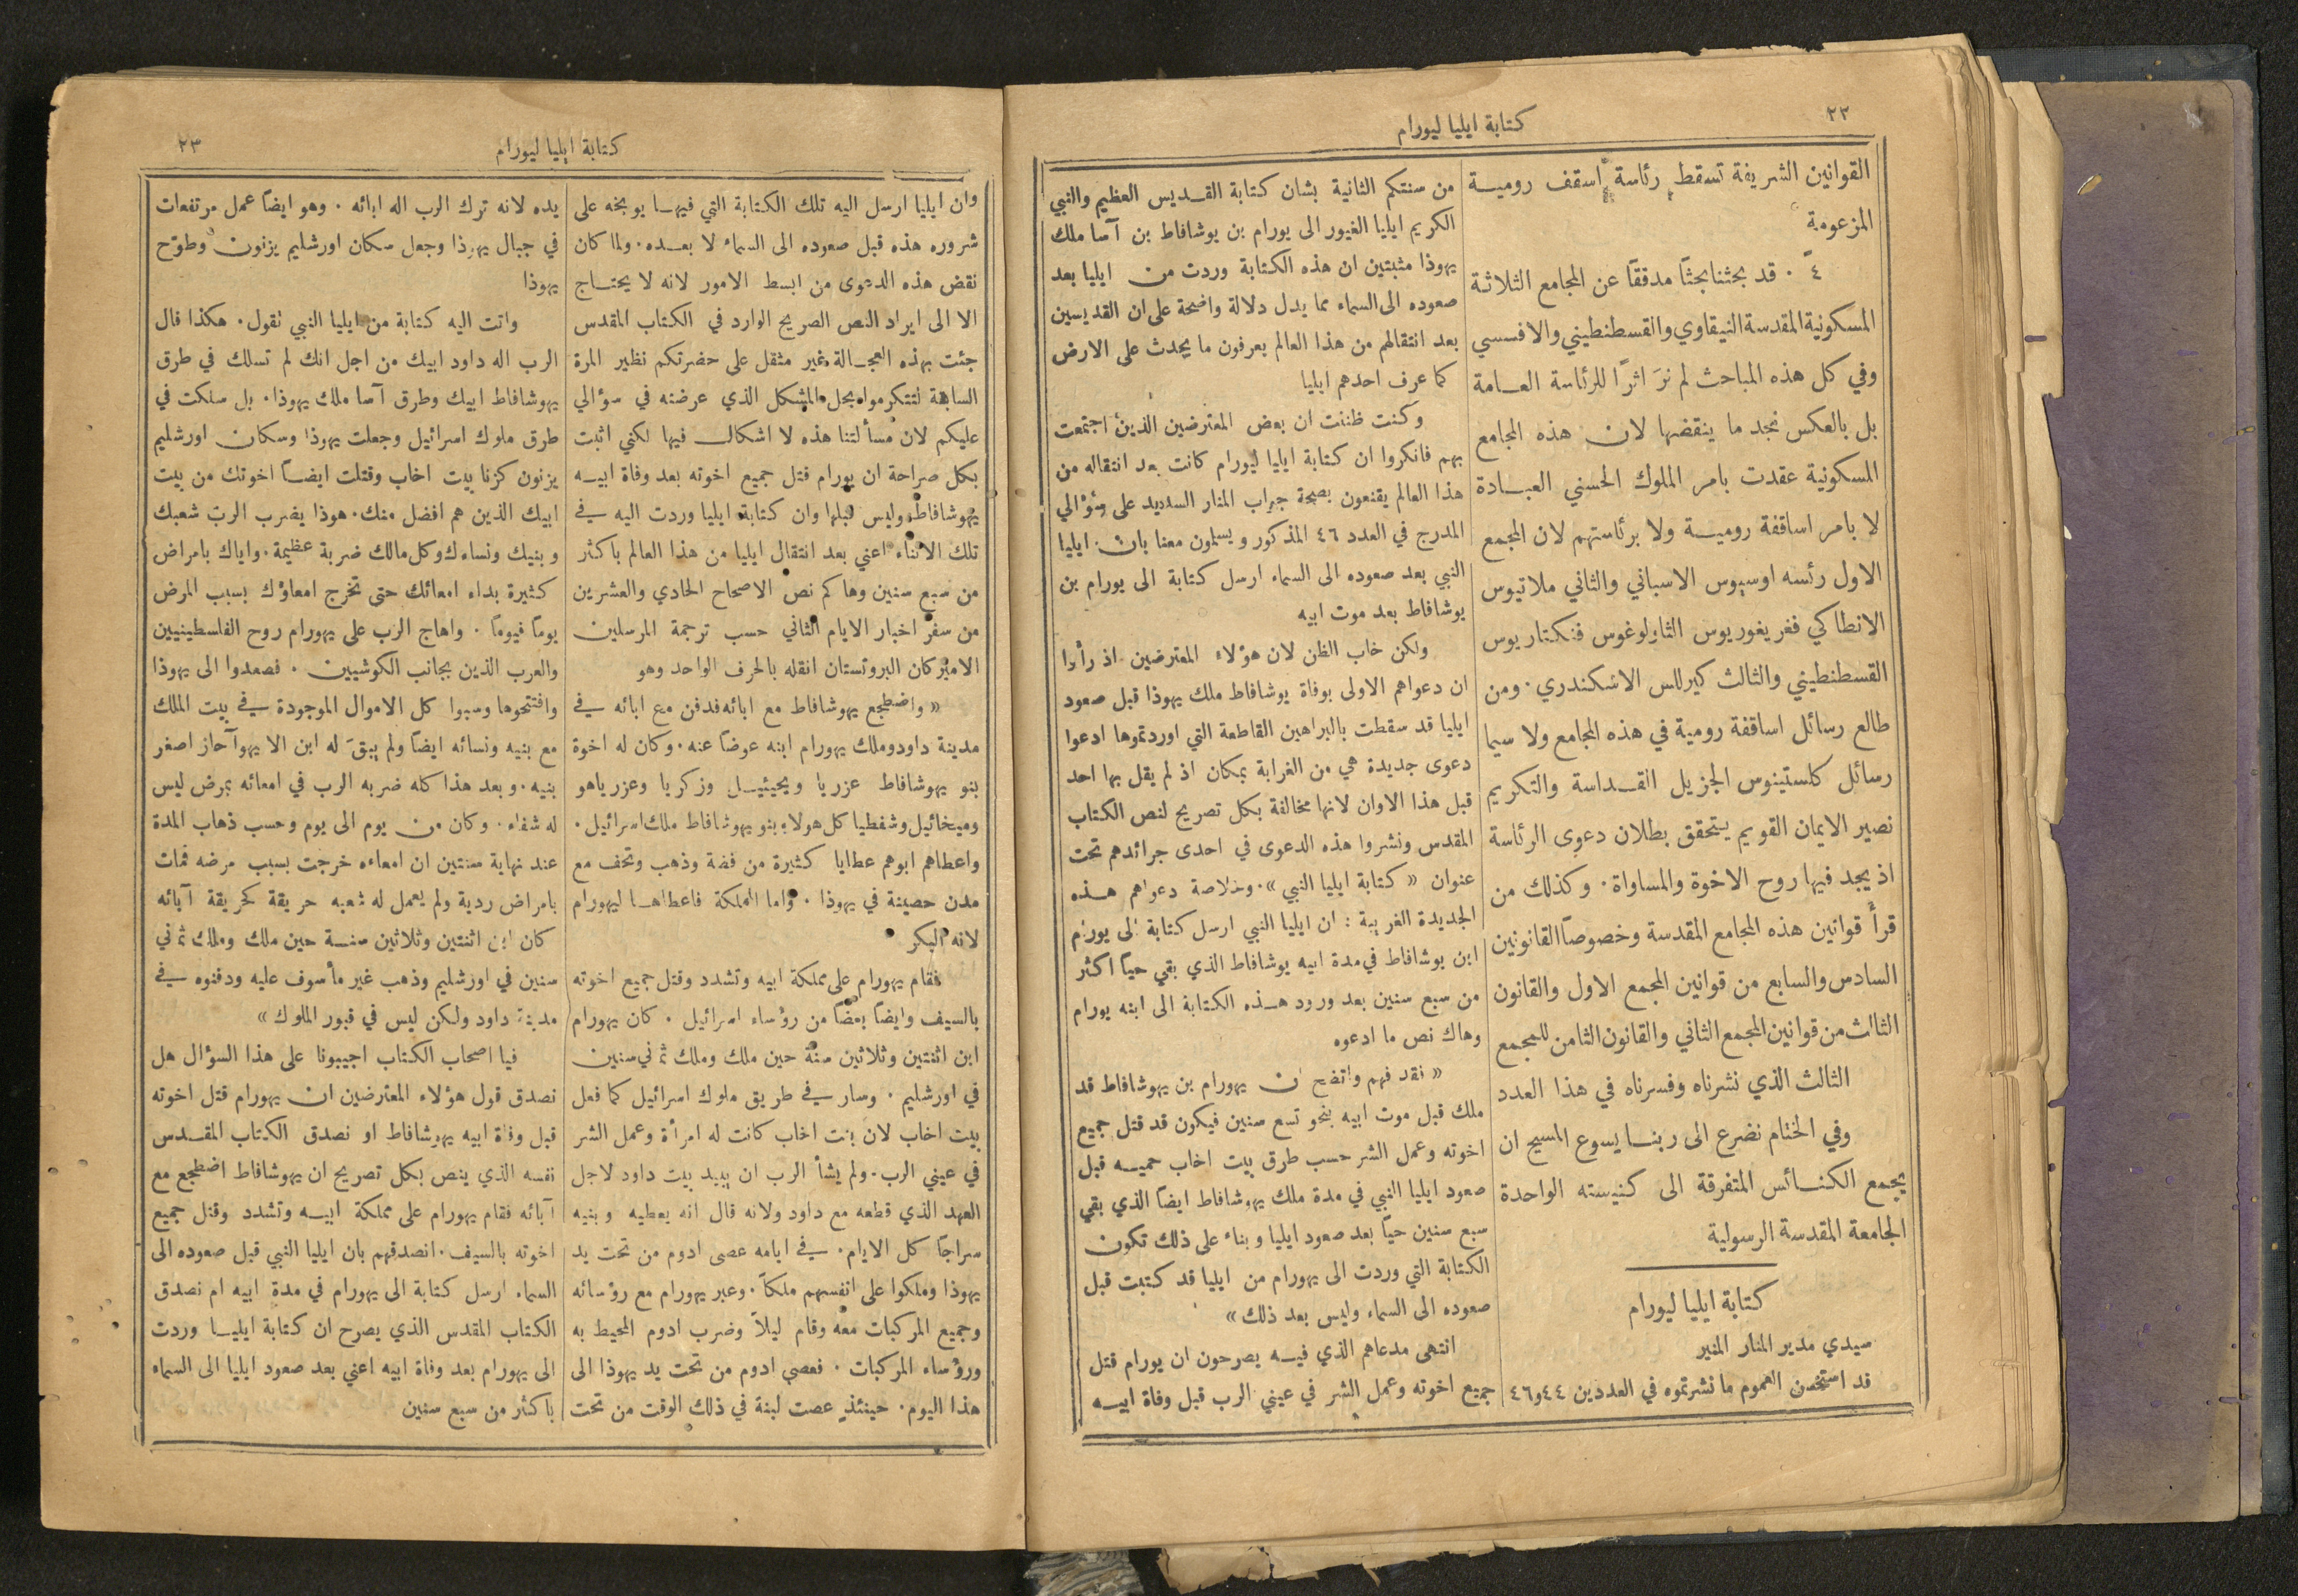 ٢٢
كتابة ايليا ليورام
القوانين الشريفة تسقط رئاسة اسقف رومية
المزعومة
٤ً . قد بحثنا بحثًا مدققًا عن المجامع الثلاثة
المسكونية المقدسة النيقاوي والقسطنطيني والافسسي
وفي كل هذه المباحث لم نرَ اثرًا للرئاسة العامة
بل بالعكس نجد ما ينقضها لان هذه المجامع
المسكونية عقدت بامر الملوك الحسني العبادة
لا بامر اساقفة رومية ولا برئاستهم لان المجمع
الاول رئسه اوسيوس الاسباني والثاني ملاتيوس
الانطاكي فغريغوريوس الثاولوغوس فنكتاريوس
القسطنطيني والثالث كيرلس الاسكندري . ومن
طالع رسائل اساقفة رومية في هذه المجامع ولا سيما
رسائل كلستينوس الجزيل القداسة والتكريم
نصير الايمان القويم يتحقق بطلان دعوى الرئاسة
اذ يجد فيها روح الاخوة والمساواة . وكذلك من
قرأ قوانين هذه المجامع المقدسة وخصوصًا القانونين
السادس والسابع من قوانين المجمع الاول والقانون
الثالث من قوانين المجمع الثاني والقانون الثامن للمجمع
الثالث الذي نشرناه وفسرناه في هذا العدد
وفي الختام نضرع الى ربنا يسوع المسيح ان
يجمع الكنائس المتفرقة الى كنيسته الواحدة
الجامعة المقدسة الرسولية
كتابة ايليا ليورام
سيدي مدير المنار المنير
قد استحسن العموم ما نشرتموه في العددين ٤٤ و٤٦
من سنتكم الثانية بشان كتابة القديس العظيم والنبي
الكريم ايليا الغيور الى يورام بن يوشافاط بن آسا ملك
يهوذا مثبتين ان هذه الكتابة وردت من ايليا بعد
صعوده الى السماء مما يدل دلالة واضحة على ان القديسين
بعد انتقالهم من هذا العالم يعرفون ما يحدث على الارض
كما عرف احدهم ايليا
وكنت ظننت ان بعض المعترضين الذين اجتمعت
بهم فانكروا ان كتابة ايليا ليورام كانت بعد انتقاله من
هذا العالم يقنعون بصحة جواب المنار السديد على سؤالي
المدرج في العدد ٤٦ المذكور ويسلمون معنا بان ايليا
النبي بعد صعوده الى السماء ارسل كتابة الى يورام بن
يوشافاط بعد موت ابيه
ولكن خاب الظن لان هؤلاء المعترضين اذ رأوا
ان دعواهم الاولى بوفاة يوشافاط ملك يهوذا قبل صعود
ايليا قد سقطت بالبراهين القاطعة التي اوردتموها ادعوا
دعوى جديدة هي من الغرابة بمكان اذ لم يقل بها احد
قبل هذا الاوان لانها مخالفة بكل تصريح لنص الكتاب
المقدس ونشروا هذه الدعوى في احدى جرائدهم تحت
عنوان « كتابة ايليا النبي » . وخلاصة دعواهم هذه
الجديدة الغريبة : ان ايليا النبي ارسل كتابة الى يورام
ابن يوشافاط في مدة ابيه يوشافاط الذي بقي حيًا اكثر
من سبع سنين بعد ورود هذه الكتابة الى ابنه يورام
وهاك نص ما ادعوه
« نقد فهم واتضح ان يهورام بن يهوشافاط قد
ملك قبل موت ابيه بنحو تسع سنين فيكون قد قتل جميع
اخوته وعمل الشر حسب طرق بيت اخاب حميه قبل
صعود ايليا النبي في مدة ملك يهوشافاط ايضًا الذي بقي
سبع سنين حيًا بعد صعود ايليا وبناء على ذلك تكون
الكتابة التي وردت الى يهورام من ايليا قد كتبت قبل
صعوده الى السماء وليس بعد ذلك »
انتهى مدعاهم الذي فيه يصرحون ان يورام قتل
جميع اخوته وعمل الشر في عيني الرب قبل وفاة ابيه
كتابة ايليا ليورام
٢٣
وان ايليا ارسل اليه تلك الكتابة التي فيها يوبخه على
شروره هذه قبل صعوده الى السماء لا بعده . ولما كان
نقض هذه الدعوى من ابسط الامور لانه لا يحتاج
الا الى ايراد النص الصريح الوارد في الكتاب المقدس
جئت بهذه العجالة غير مثقل على حضرتكم نظير المرة
السابقة لتتكرموا بحل المشكل الذي عرضته في سؤالي
عليكم لان مسألتنا هذه لا اشكال فيها لكني اثبت
بكل صراحة ان يورام قتل جميع اخوته بعد وفاة ابيه
يهوشافاط وليس قبلها وان كتابة ايليا وردت اليه في
تلك الاثناء اعني بعد انتقال ايليا من هذا العالم باكثر
من سبع سنين وهاكم نص الاصحاح الحادي والعشرين
من سفر اخبار الايام الثاني حسب ترجمة المرسلين
الاميركان البروتستان انقله بالحرف الواحد وهو
« واضطجع يهوشافاط مع ابائه فدفن مع ابائه في
مدينة داود وملك يهورام ابنه عوضًا عنه . وكان له اخوة
بنو يهوشافاط عزريا ويحيئيل وزكريا وعزرياهو
وميخائيل وشفطيا كل هولاء بنو يهوشافاط ملك اسرائيل .
واعطاهم ابوهم عطايا كثيرة من فضة وذهب وتحف مع
مدن حصينة في يهوذا . واما المملكة فاعطاها ليهورام
لانه البكر
فقام يهورام على مملكة ابيه وتشدد وقتل جميع اخوته
بالسيف وايضًا بعضًا من رؤساء اسرائيل . كان يهورام
ابن اثنتين وثلاثين سنة حين ملك وملك ثماني سنين
في اورشليم . وسار في طريق ملوك اسرائيل كما فعل
بيت اخاب لان بنت اخاب كانت له امرأة وعمل الشر
في عيني الرب . ولم يشأ الرب ان يبيد بيت داود لاجل
العهد الذي قطعه مع داود ولانه قال انه يعطيه وبنيه
سراجًا كل الايام . في ايامه عصى ادوم من تحت يد
يهوذا وملكوا على انفسهم ملكًا . وعبر يهورام مع رؤسائه
وجميع المركبات معه وقام ليلاً وضرب ادوم المحيط به
ورؤساء المركبات . فعصي ادوم من تحت يد يهوذا الى
هذا اليوم . حينئذٍ عصت لبنة في ذلك الوقت من تحت
يده لانه ترك الرب اله ابائه . وهو ايضًا عمل مرتفعات
في جبال يهوذا وجعل سكان اورشليم يزنون وطوّح
يهوذا
واتت اليه كتابة من ايليا النبي تقول . هكذا قال
الرب اله داود ابيك من اجل انك لم تسلك في طرق
يهوشافاط ابيك وطرق آسا ملك يهوذا . بل سلكت في
طرق ملوك اسرائيل وجعلت يهوذا وسكان اورشليم
يزنون كزنا بيت اخاب وقتلت ايضًا اخوتك من بيت
ابيك الذين هم افضل منك . هوذا يضرب الرب شعبك
وبنيك ونساءك وكل مالك ضربة عظيمة . واياك بامراض
كثيرة بداء امعائك حتى تخرج امعاؤك بسبب المرض
يومًا فيومًا . واهاج الرب على يهورام روح الفلسطينيين
والعرب الذين بجانب الكوشيين . فصعدوا الى يهوذا
وافتتحوها وسبوا كل الاموال الموجودة في بيت الملك
مع بنيه ونسائه ايضًا ولم يبقَ له ابن الا يهوآحاز اصغر
بنيه . وبعد هذا كله ضربه الرب في امعائه بمرض ليس
له شفاء . وكان من يوم الى يوم وحسب ذهاب المدة
عند نهاية سنتين ان امعاءه خرجت بسبب مرضه فمات
بامراض ردية ولم يعمل له شعبه حريقة كحريقة آبائه
كان ابن اثنتين وثلاثين سنة حين ملك وملك ثماني
سنين في اورشليم وذهب غير مأسوف عليه ودفنوه في
مدينة داود ولكن ليس في قبور الملوك »
فيا اصحاب الكتاب اجيبونا على هذا السؤال هل
نصدق قول هؤلاء المعترضين ان يهورام قتل اخوته
قبل وفاة ابيه يهوشافاط او نصدق الكتاب المقدس
نفسه الذي ينص بكل تصريح ان يهوشافاط اضطجع مع
آبائه فقام يهورام على مملكة ابيه وتشدد وقتل جميع
اخوته بالسيف . انصدقهم بان ايليا النبي قبل صعوده الى
السماء ارسل كتابة الى يهورام في مدة ابيه ام نصدق
الكتاب المقدس الذي يصرح ان كتابة ايليا وردت
الى يهورام بعد وفاة ابيه اعني بعد صعود ايليا الى السماء
باكثر من سبع سنين